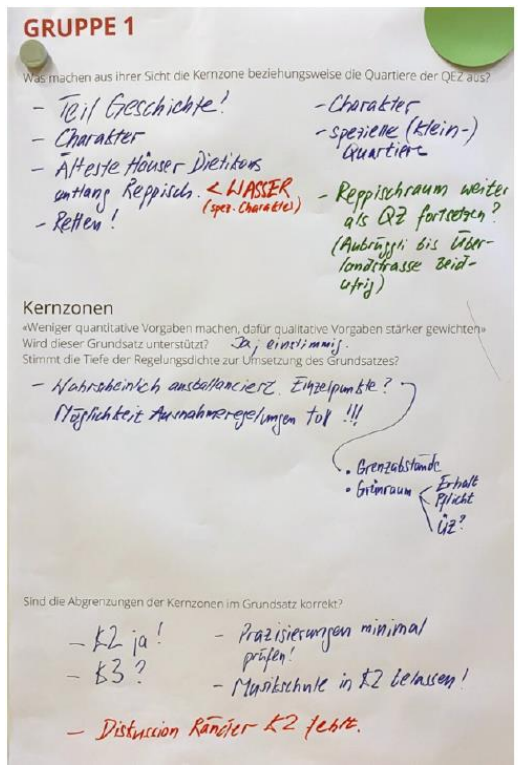 GRUPPE 1
Was machen aus ihrer Sicht die Kernzone beziehungsweise die Quartiere der QEZ aus?
- Teil Geschichte!
- Charakter
- Älteste Häuser Dietikons
entlang Reppisch. < WASSER
(spez. Charakter)
- Retten!
- Charakter
- spezielle (klein-)
Quartiere
- Reppischraum weiter
als QZ fortsetzen?
(Aubrüggli bis Über-
landstrasse beid-
ufrig)
Kernzonen
«Weniger quantitative Vorgaben machen, dafür qualitative Vorgaben stärker gewichten»
Wird dieser Grundsatz unterstützt? Ja, einstimmig.
Stimmt die Tiefe der Regelungsdichte zur Umsetzung des Grundsatzes?
- Wahrscheinlich ausballanciert. Einzelpunkte?
Möglichkeit Ausnahmeregelungen toll !!!
• Grenzabstände
• Grünraum < Erhalt
Pflicht
ÜZ?
Sind die Abgrenzungen der Kernzonen im Grundsatz korrekt?
- K2 ja!
- K3?
- Präzisierungen minimal
prüfen!
- Musikschule in K2 belassen!
- Diskussion Ränder K2 fehlt.